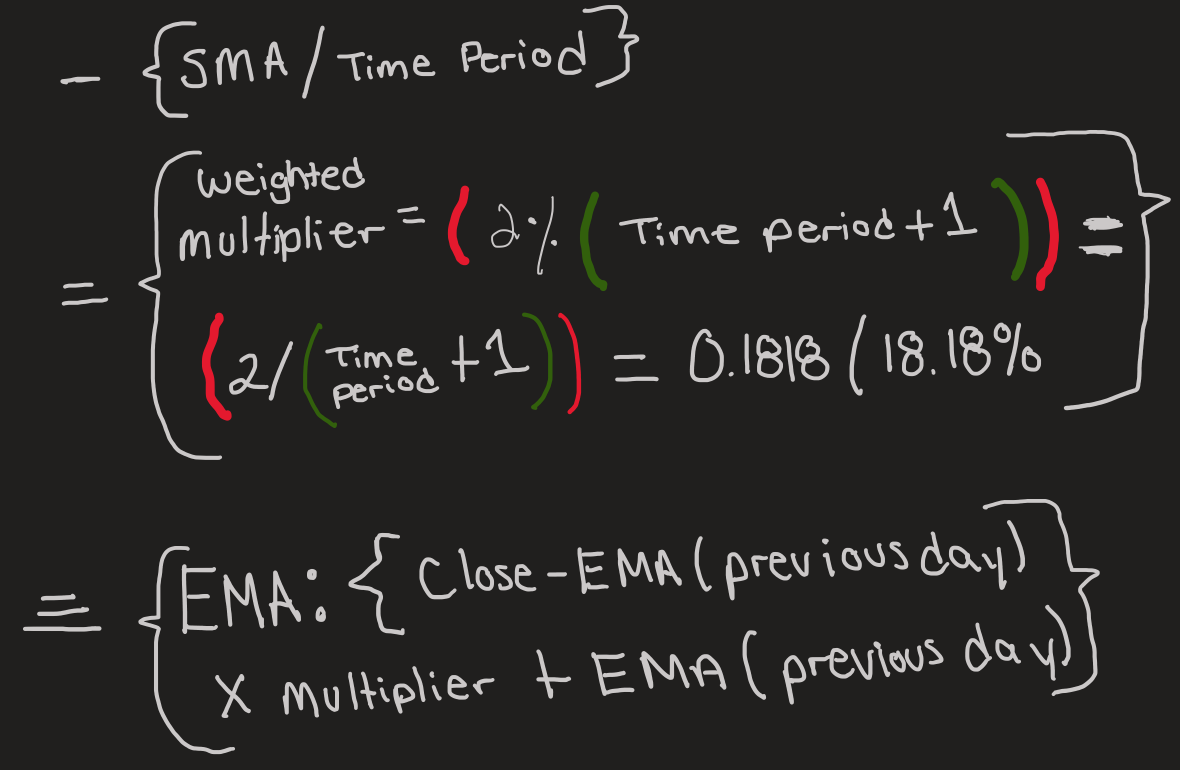 - {SMA/Time Period}
weighted
= { multiplier = (2%(Time period+1)) = }
(2/(Time period +1)) = 0.1818 (18.18%
≡ {EMA: {Close-EMA(previous day)
x multiplier + EMA(previous day)}